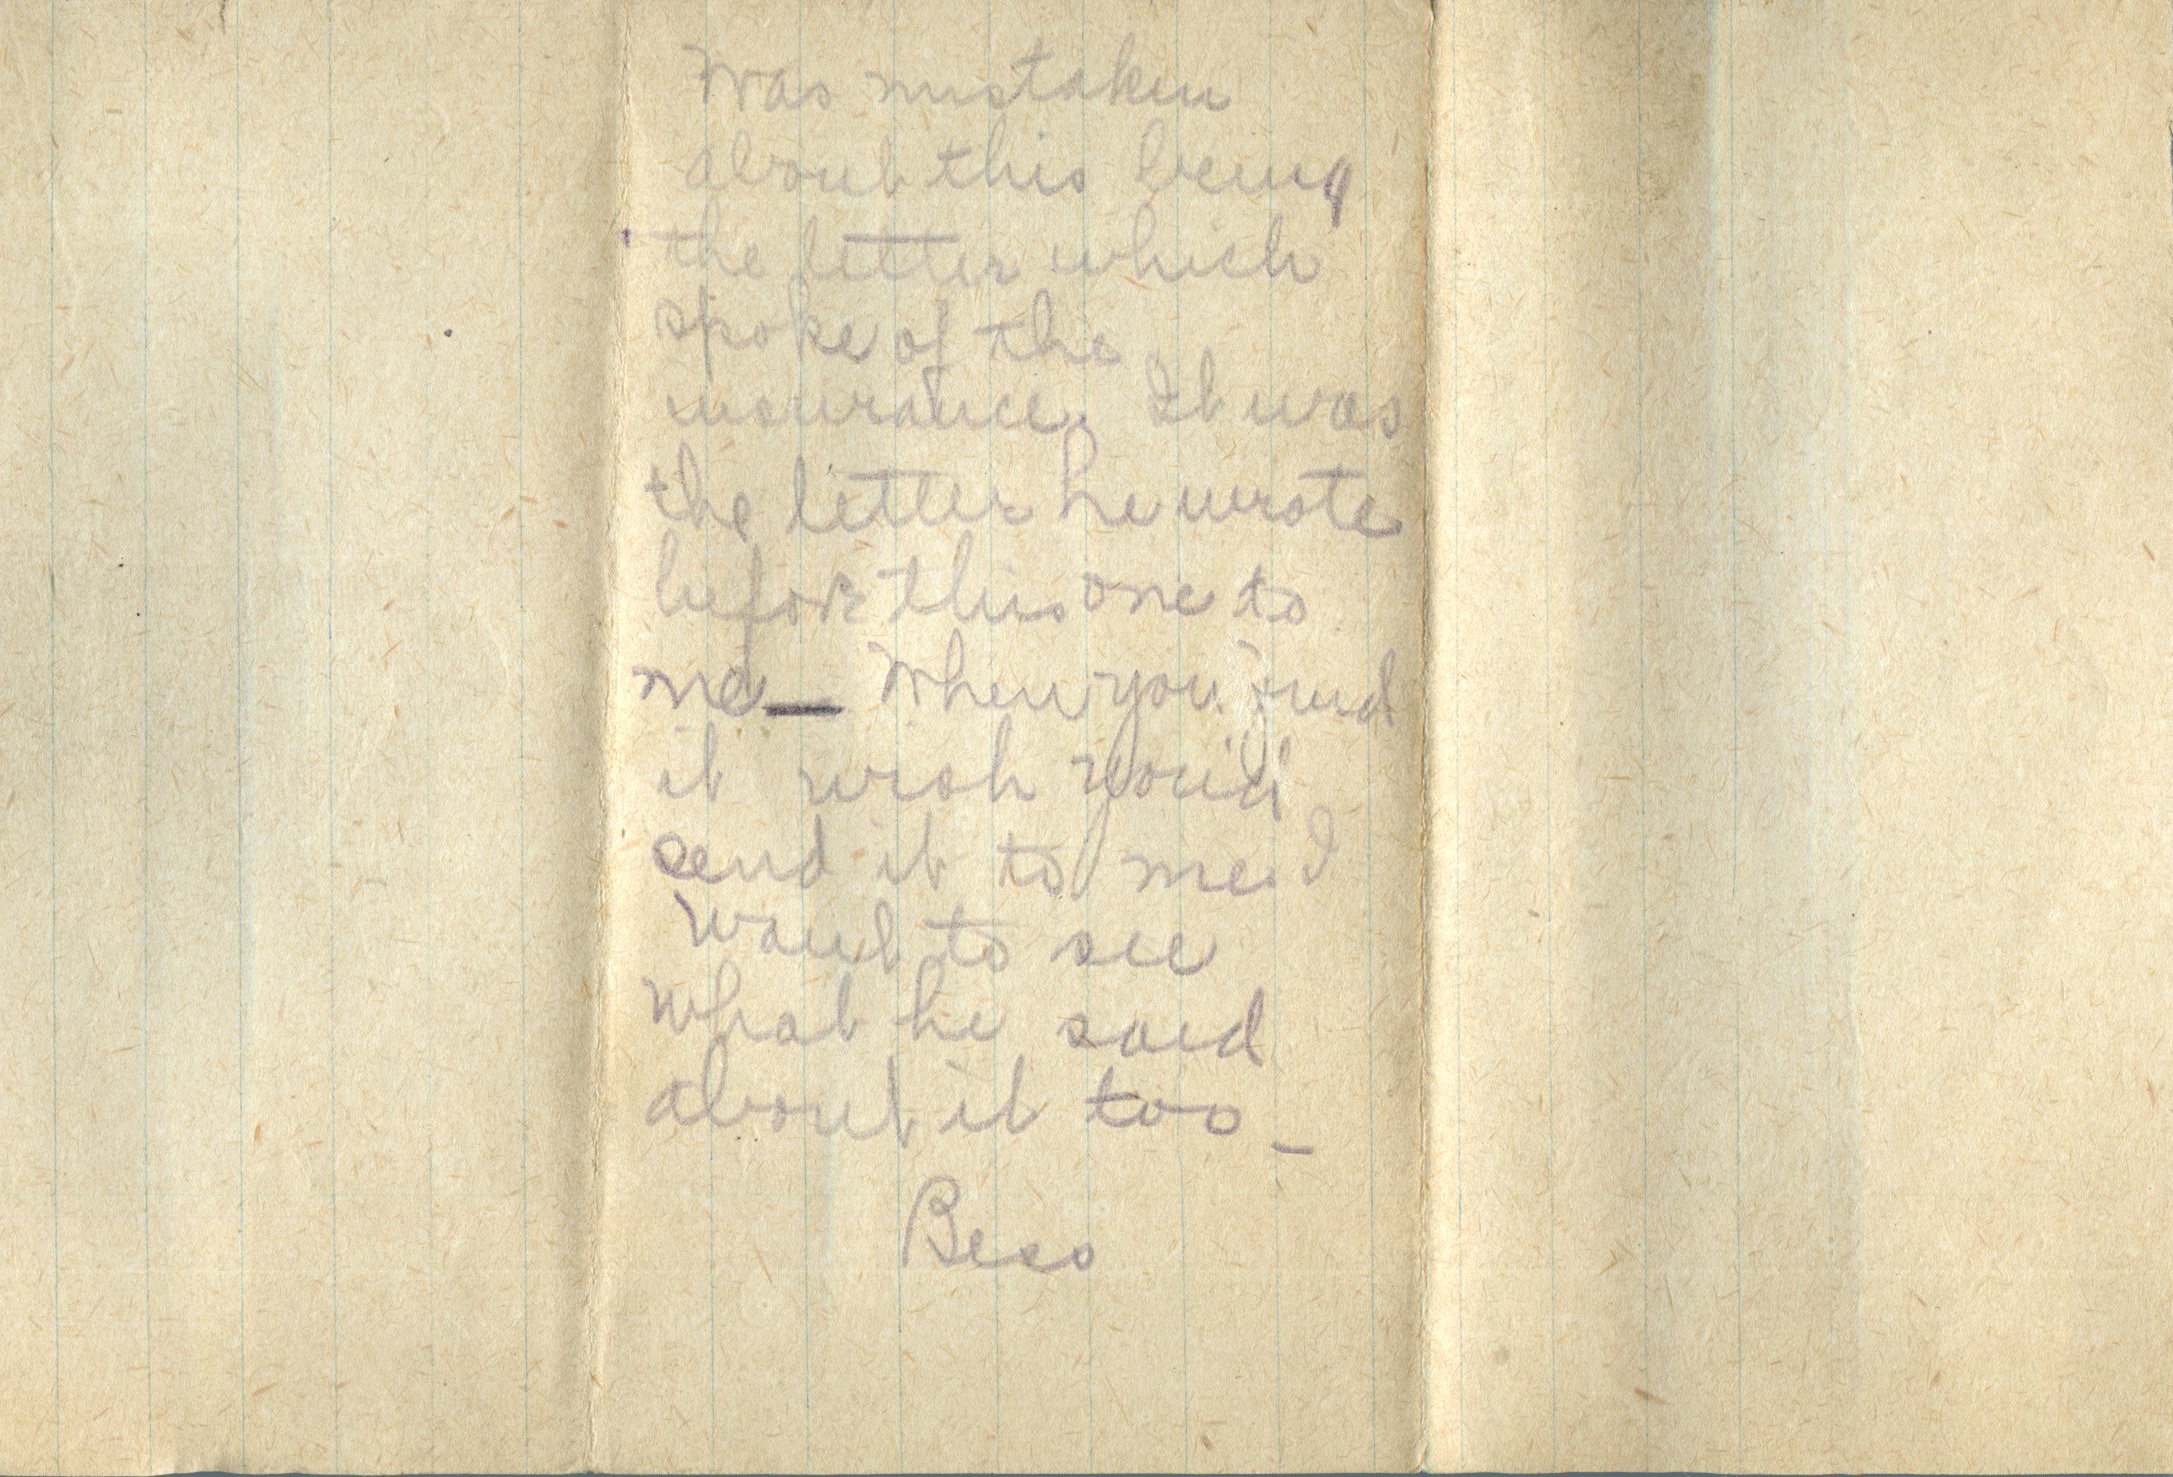 Was mistaken
about this being
the letter which
spoke of the
insurance. It was
the letter he wrote
before this one to
me — When you find
it wish you'd
send it to me. I
want to see
what he said
about it too —
Bess